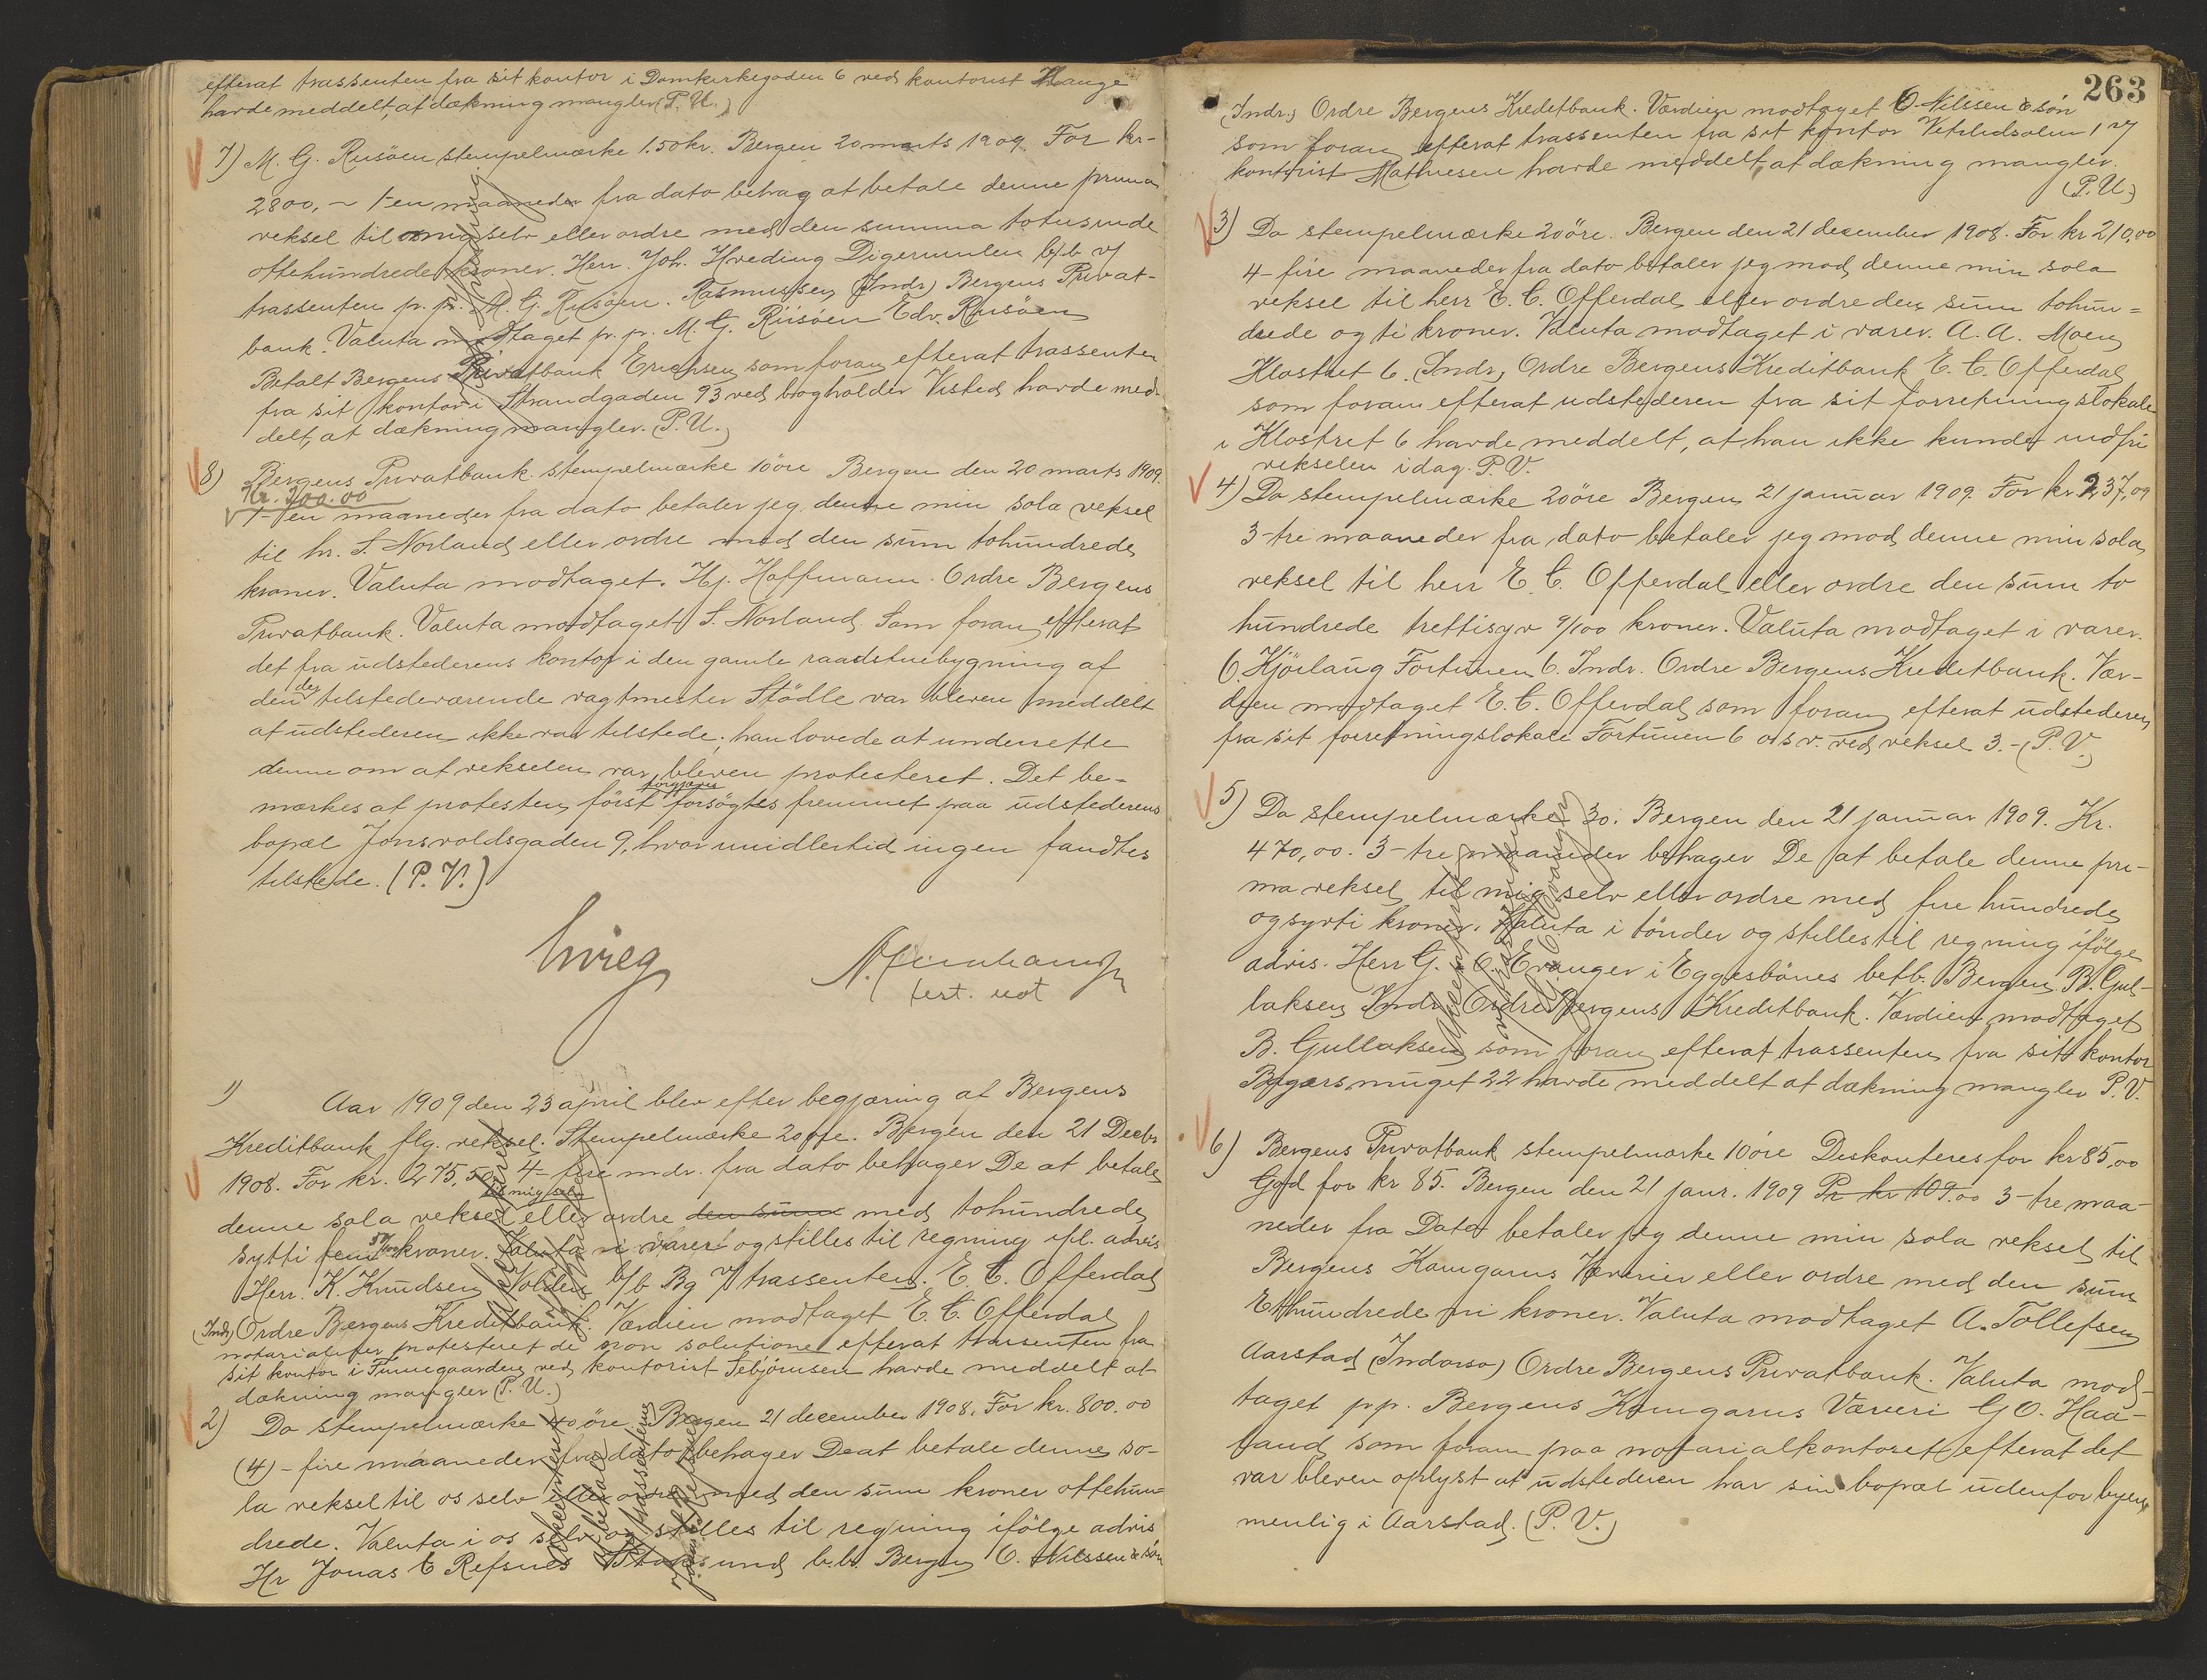 efterat trassenten fra sit kontor i Domkirkegaden 6 ved kontorist Hauge
havde meddelt, at dækning mangler (P. U.)
7) M. G. Rusöen stempelmærke 1.50 kr. Bergen 20 marts 1909 For kr-
2800,- 1-en maaneder fra dato behag at betale denne prima
veksel til mig selv eller ordre med den summa totusinde
ottehundrede kroner. Herr. Joh. Hveding Digermulen b/b v/
trassenten p. pr. M. G. Rusöen. Rasmussen (Indr) Bergens Privat-
bank. Valuta modtaget pr. p. M. G. Riisöen Edv. Riisöen
Betalt Bergens Privatbank Erichsen som foran efterat trassenten
fra sit kontor i Strandgaden 93 ved bogholder Visted havde med-
delt, at dækning mangler. (P. U.)
8) Bergens Privatbank. stempelmærke 10 öre Bergen den 20 marts 1909.
Kr. 200.00
1-en maaneder fra dato betaler jeg denne min sola veksel
til hr. S. Norland eller ordre med den sum tohundrede
kroner. Valuta modtaget. Hj. Hoffmann. Ordre Bergens
Privatbank. Valuta modtaget S. Norland. Som foran efterat
det fra udstederens kontor i den gamle raadstuebygning af
den der tilstedeværende vagtmester Stödle var bleven meddelt
at udstederen ikke var tilstede; han lovede at underrette
denne om at vekselen var bleven protesteret. Det be-
mærkes at protesten först forgjæves forsögtes fremmet paa udstederens
bopæl Jonsvoldsgaden 9, hvor imidlertid ingen fandtes
tilstede. (P. V.)
1) Aar 1909 den 23 april blev efter begjæring af Bergens
Kreditbank flg. veksel. Stempelmærke 20 öre. Bergen den 21 Decbr
1908. For kr. 275,50 4-fire mdr. fra dato behager De at betale
denne sola veksel til mig selv eller ordre den sum med tohundrede
sytti fem 50/100 kroner. Valuta i varer og stilles til regning ifl. advis
Herr. K. Knudsen Volden b/b Bg v/ trassenten. E. C. Offerdal
(Indr) Ordre Bergens Kreditbank. Værdien modtaget E. C. Offerdal
notarialiter protesteret de non solutione efterat trassenten fra
sit kontor i Finnegaarden ved kontorist Sebjörnsen havde meddelt at
dækning mangler (P. U.)
2) Do stempelmærke 40 öre. Bergen 21 december 1908. For kr. 800.00
(4)-fire maaneder fra dato behager De at betale denne so-
la veksel til os selv eller ordre med den sum kroner ottehun-
drede. Valuta i os selv og stilles til regning ifölge advis
Hr Jonas C Refsnes b.b. Bergen O. Nilssen & sön
263
(Indr.) Ordre Bergens Kreditbank. Værdien modtaget O. Nilssen & sön
som foran efterat trassenten fra sit kontor Vetrlidsalm 1 v/
kontorist Mathiesen havde meddelt, at dækning mangler.
(P. U.)
3) Do stempelmærke 20 öre. Bergen den 21 december 1908. For kr 210,00
4-fire maaneder fra dato betaler jeg mod denne min sola
veksel til herr E. C. Offerdal eller ordre den sum tohun=
drede og ti kroner. Valuta modtaget i varer. A. A. Moen
Klostret 6. (Indr) Ordre Bergens Kreditbank E. C. Offerdal
som foran efterat udstederen fra sit forretningslokale
i Klostret 6 havde meddelt, at han ikke kunde indfri
vekselen idag. P. V.
4) Do stempelmærke 20 öre Bergen 21 januar 1909. For kr 237,09
3-tre maaneder fra dato betaler jeg mod denne min sola
veksel til herr E. C. Offerdal eller ordre den sum to
hundrede trettisyv 9/100 kroner. Valuta modtaget i varer.
O. Kjörlaug Fortunen 6. Indr. Ordre Bergens Kreditbank. Vær-
dien modtaget E. C. Offerdal som foran efterat udstederen
fra sit forretningslokale Fortunen 6 osv. ved veksel 3.- (P. V.)
5) Do stempelmærke 30. Bergen den 21 januar 1909. Kr.
470,00. 3-tre maaneder behager De at betale denne pri-
ma veksel til mig selv eller ordre med fire hundrede
og sytti kroner. Valuta i tönder og stilles til regning ifölge
advis. Herr G. O. Evanger i Eggesbönes betb. Bergen. B. Gul-
laksen Indr. Ordre Bergens Kreditbank. Værdien modtaget
B. Gullaksen som foran efterat trassenten fra sit kontor
22 havde meddelt at dækning mangler P. V.
6) Bergens Privatbank stempelmærke 10 öre Diskonteres for kr 85,00
God for kr 85. Bergen den 21 janr. 1909 Pr kr 109.00 3-tre maa-
neder fra Dato betaler jeg denne min sola veksel til
Bergens Kamgarns Væveri eller ordre med den sum
Ethundrede ni kroner. Valuta modtaget A. Tollefsen
Aarstad (Indorso) Ordre Bergens Privatbank. Valuta mod-
taget pp. Bergens Kamgarns Væveri G O. Haa-
land som foran paa notarialkontoret efterat det
var bleven oplyst at udstederen har sin bopæl udenfor byen,
menlig i Aarstad. (P. V.)